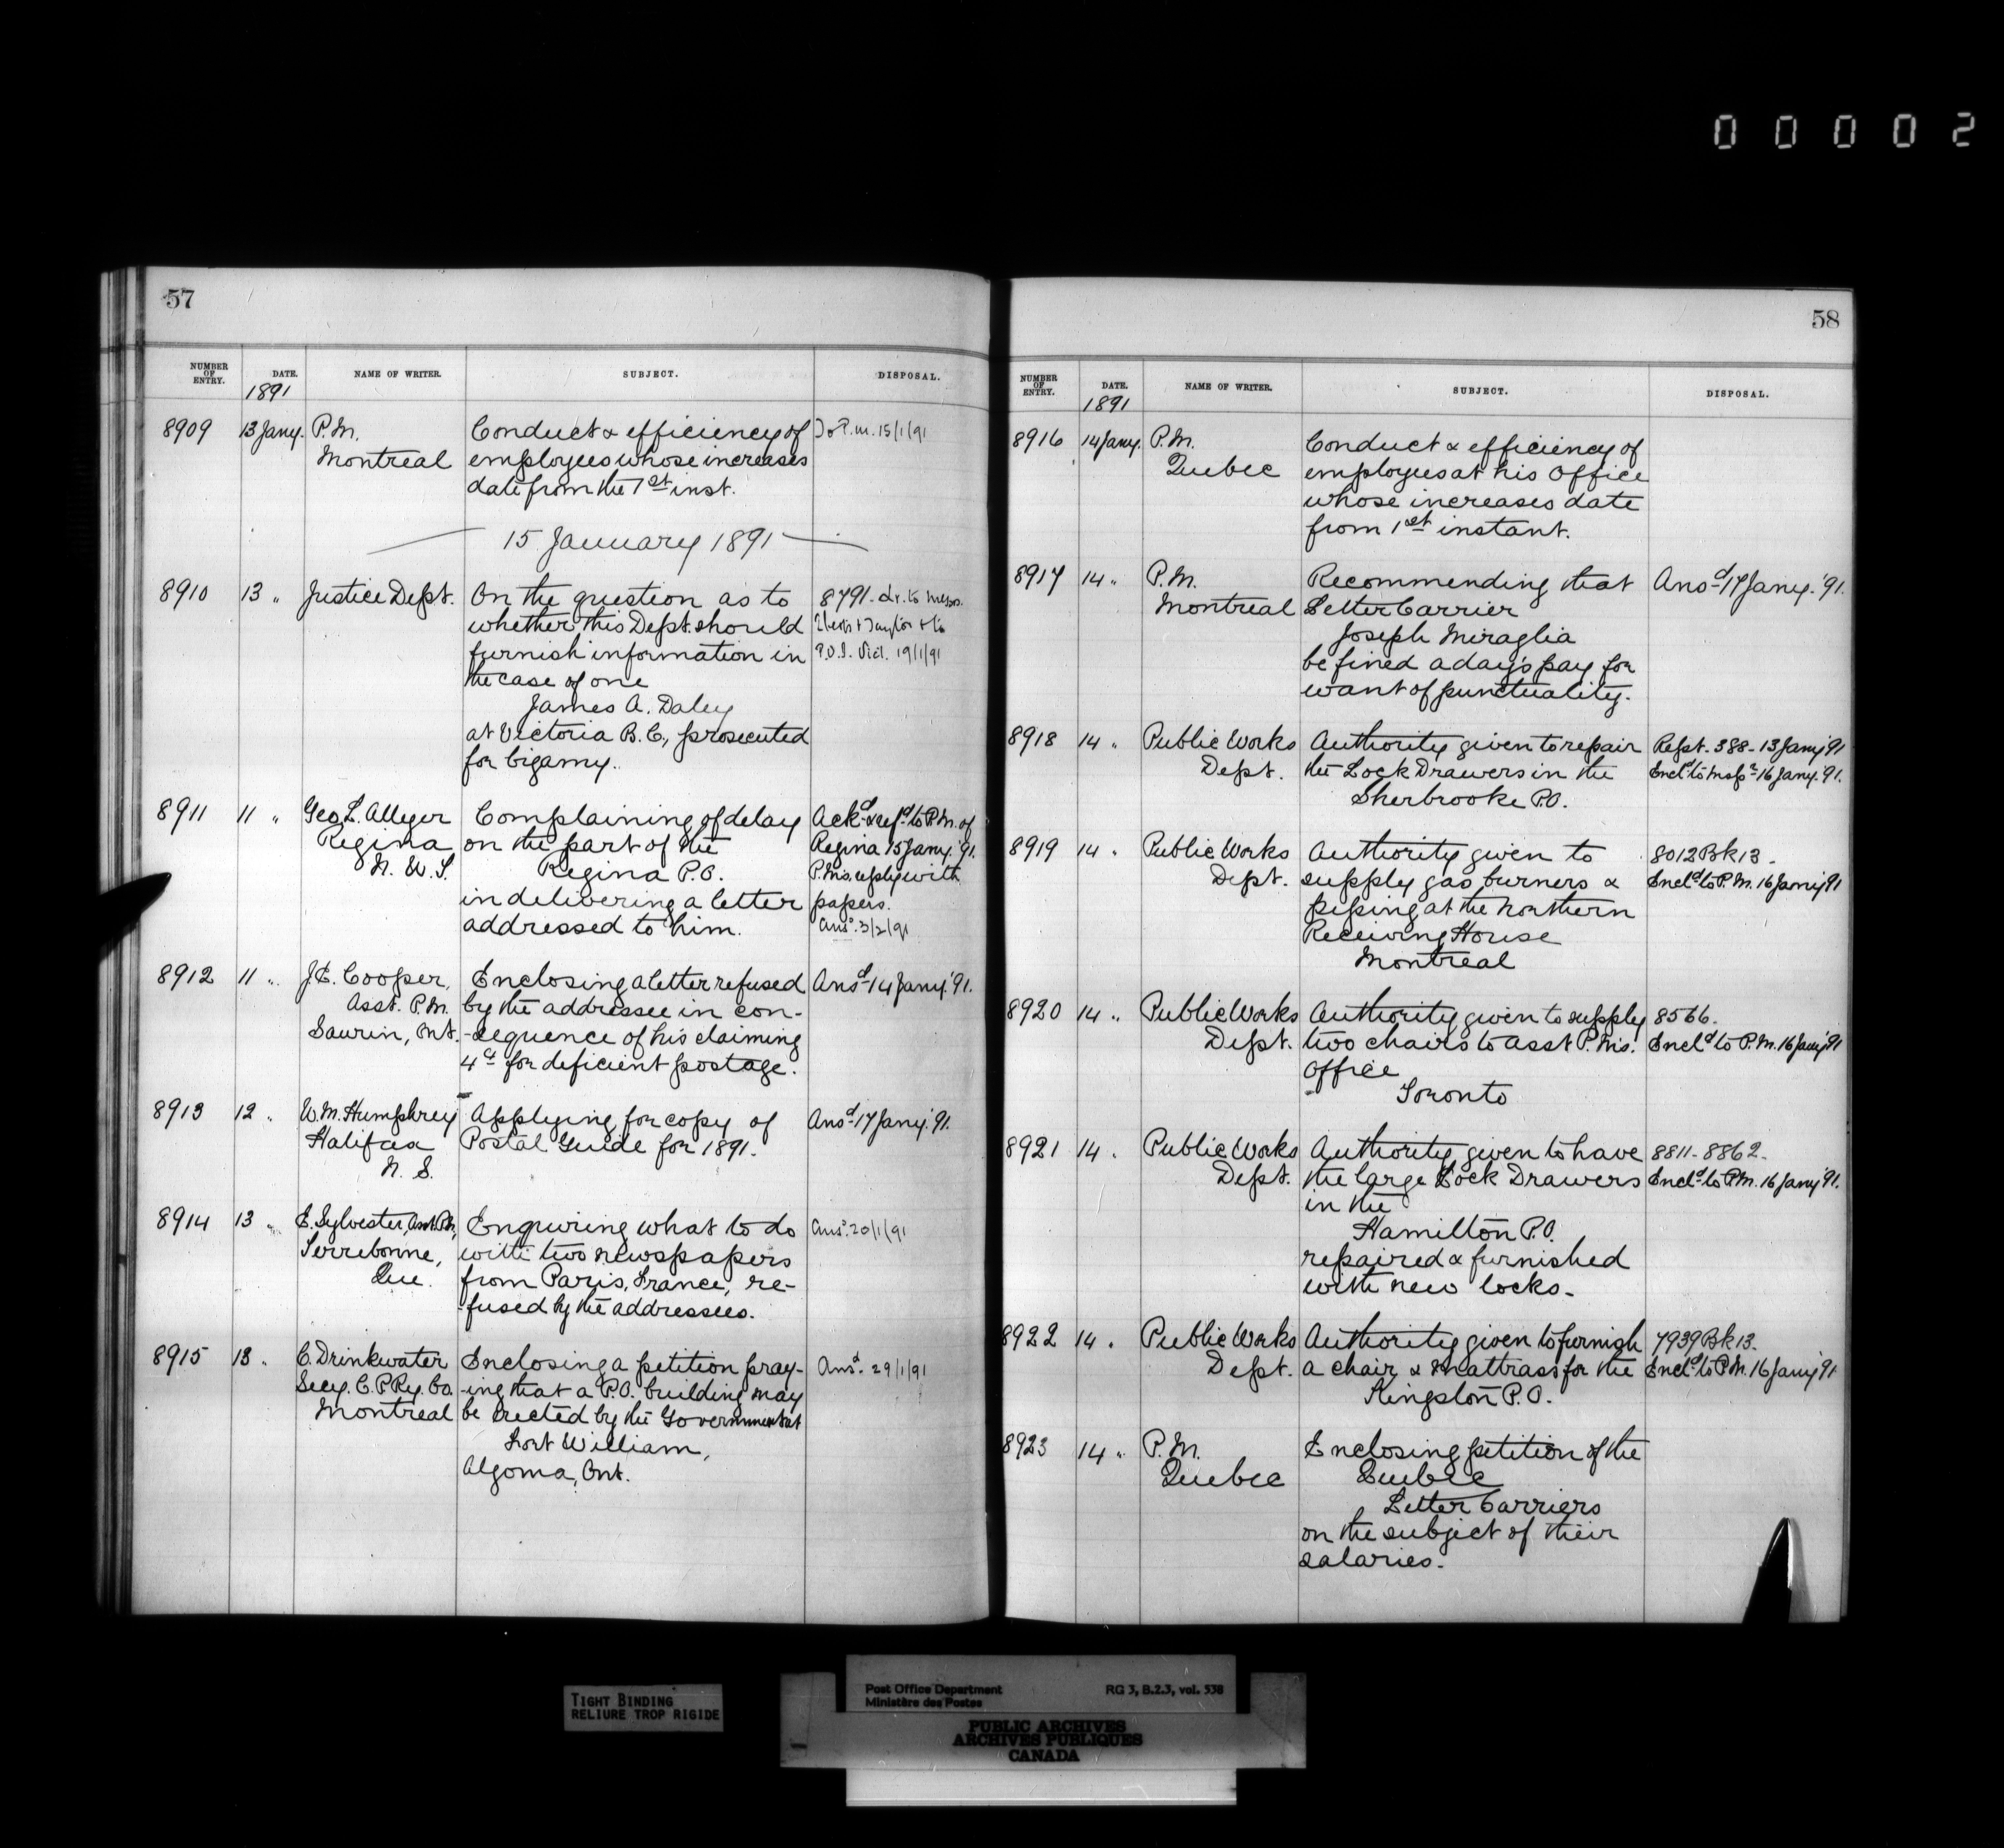 00002
57
NUMBER OF ENTRY. DATE. NAME OF WRITER. SUBJECT. DISPOSAL.
1891
8909 13 Jany. P.M. Conduct & efficiency of To P.M. 15/1/91
Montreal employees whose increases
date from the 1st inst.
— 15 January 1891 —
8910 13 " Justice Dept. On the question as to 8791 - Lr. to Messrs.
whether this Dept. should & Taylor & to
furnish information in P.O.I. Vict. 19/1/91
the case of one
James A. Daley
at Victoria B.C., prosecuted
for bigamy.
8911 11 " Geo. L. Alleyer Complaining of delay Ackd & refd to P.M. of
Regina on the part of the Regina 15 Jany. '91.
N.W.T. Regina P.O. P.M's reply with
in delivering a letter papers.
addressed to him. Ansd. 3/2/91
8912 11 " J.E. Cooper, Enclosing a letter refused Ansd 14 Jany. '91.
Asst. P.M. by the addressee in con-
Saurin, Ont. -sequence of his claiming
4cs for deficient postage.
8913 12 " W.M. Humphrey Applying for copy of Ansd 17 Jany. '91.
Halifax Postal Guide for 1891.
N.S.
8914 13 " E. Sylvester, Asst. P.M., Enquiring what to do Ansd. 20/1/91
Terrebonne, with two newspapers
Que. from Paris, France, re-
-fused by the addressees.
8915 13 " C. Drinkwater Enclosing a petition pray- Ansd. 29/1/91
Secy. C.P.Ry. Co. -ing that a P.O. building may
Montreal be erected by the Government at
Fort William,
Algoma, Ont.
58
NUMBER OF ENTRY. DATE. NAME OF WRITER. SUBJECT. DISPOSAL.
1891
8916 14 Jany. P.M. Conduct & efficiency of
Quebec employees at his Office
whose increases date
from 1st instant.
8917 14 " P.M. Recommending that Ansd 17 Jany. '91.
Montreal Letter Carrier
Joseph Miraglia
be fined a day's pay for
want of punctuality.
8918 14 " Public Works Authority given to repair Rept. 388 - 13 Jany '91
Dept. the Lock Drawers in the Encld to Inspr 16 Jany. '91.
Sherbrooke P.O.
8919 14 " Public Works Authority given to 8012 Bk 13.
Dept. supply gas burners & Encld to P.M. 16 Jany '91
piping at the Northern
Receiving House
Montreal
8920 14 " Public Works Authority given to supply 8566.
Dept. two chairs to Asst P.M's. Encld to P.M. 16 Jany '91
Office
Toronto
8921 14 " Public Works Authority given to have 8811 - 8862 -
Dept. the large Lock Drawers Encld to P.M. 16 Jany '91.
in the
Hamilton P.O.
repaired & furnished
with new locks.
8922 14 " Public Works Authority given to furnish 7939 Bk 13.
Dept. a chair & mattrass for the Encld to P.M. 16 Jany '91
Kingston P.O.
8923 14 " P.M. Enclosing petition of the
Quebec Quebec
Letter Carriers
on the subject of their
salaries.
TIGHT BINDING
RELIURE TROP RIGIDE
Post Office Department RG 3, B.2.3, vol. 538
Ministère des Postes
PUBLIC ARCHIVES
ARCHIVES PUBLIQUES
CANADA